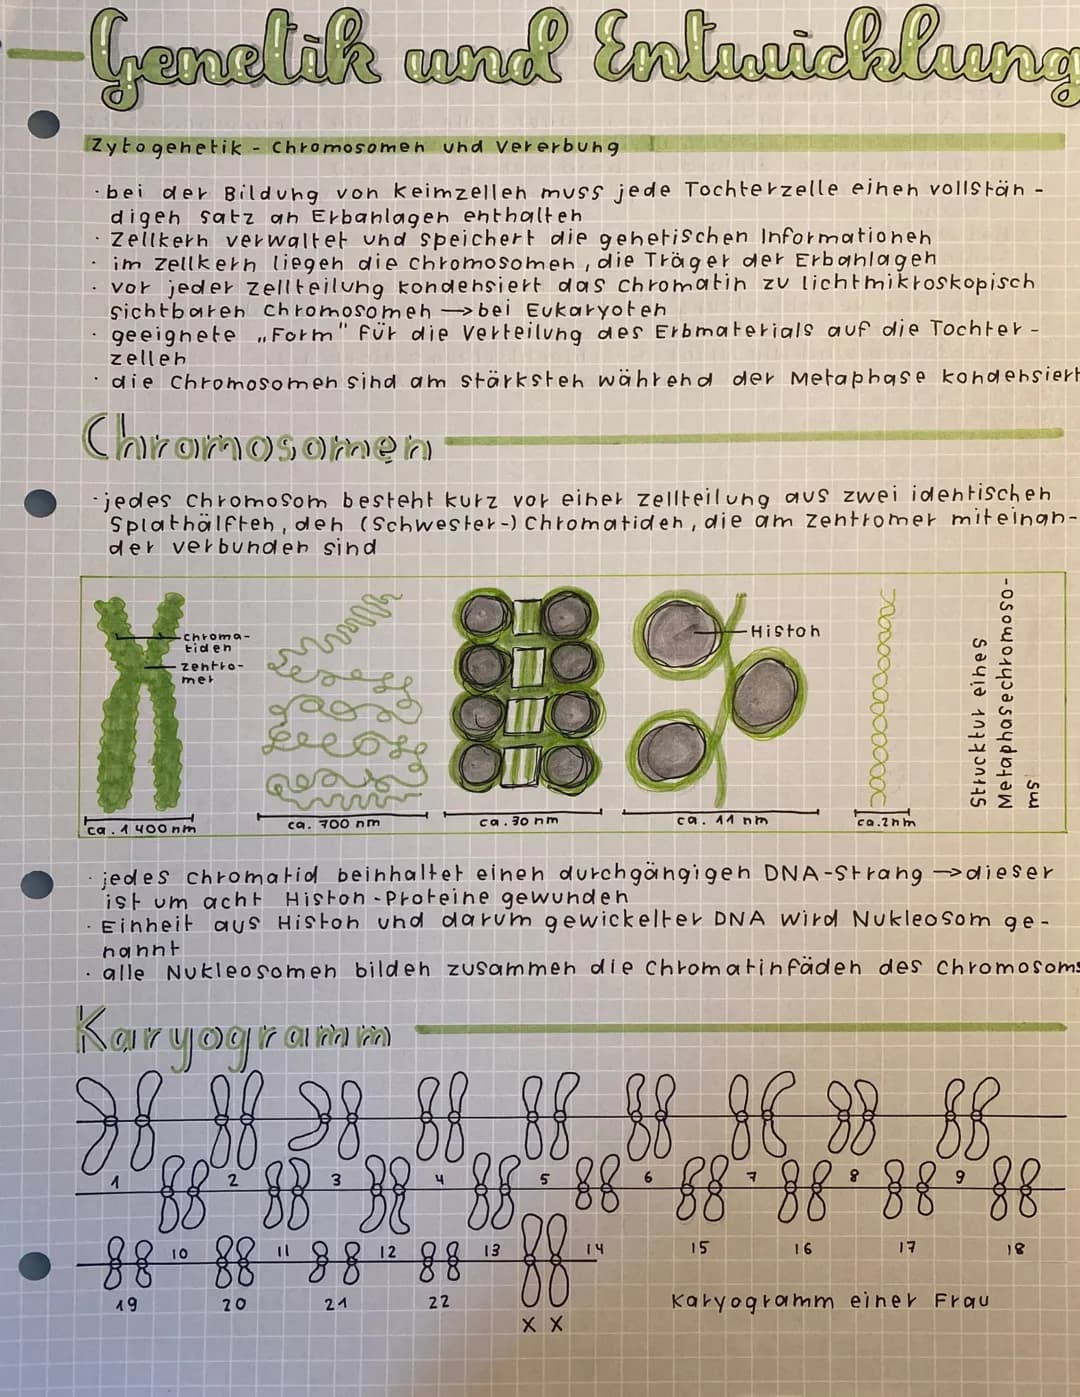 Genetik und Entwicklung
Zytogenetik - Chromosomen und Vererbung
· bei der Bildung von Keimzellen muss jede Tochterzelle einen vollstän -
digen Satz an Erbanlagen enthalten
· Zellkern verwaltet und speichert die genetischen Informationen
· im Zellkern liegen die Chromosomen, die Träger der Erbanlagen
· vor jeder Zellteilung kondensiert das Chromatin zu lichtmikroskopisch
sichtbaren Chromosomen → bei Eukaryoten
· geeignete „Form" für die Verteilung des Erbmaterials auf die Tochter -
zellen
· die Chromosomen sind am stärksten während der Metaphase kondensiert
Chromosomen
· jedes Chromosom besteht kurz vor einer Zellteilung aus zwei identischen
Splathälften, den (Schwester-) Chromatiden, die am Zentromer miteinan-
der verbunden sind
Chroma-
tiden
Zentro-
mer
Histon
Strucktur eines
Metaphasechromoso-
ms
ca. 1 400 nm
ca. 700 nm
ca. 30 nm
ca. 11 nm
ca. 2nm
· jedes Chromatid beinhaltet einen durchgängigen DNA-Strang → dieser
ist um acht Histon - Proteine gewunden
· Einheit aus Histon und darum gewickelter DNA wird Nukleosom ge-
nannt
· alle Nukleosomen bilden zusammen die Chromatinfäden des Chromosoms
Karyogramm
1 2 3 4 5 6 7 8 9
10 11 12 13 14 15 16 17 18
19 20 21 22
X X
Karyogramm einer Frau